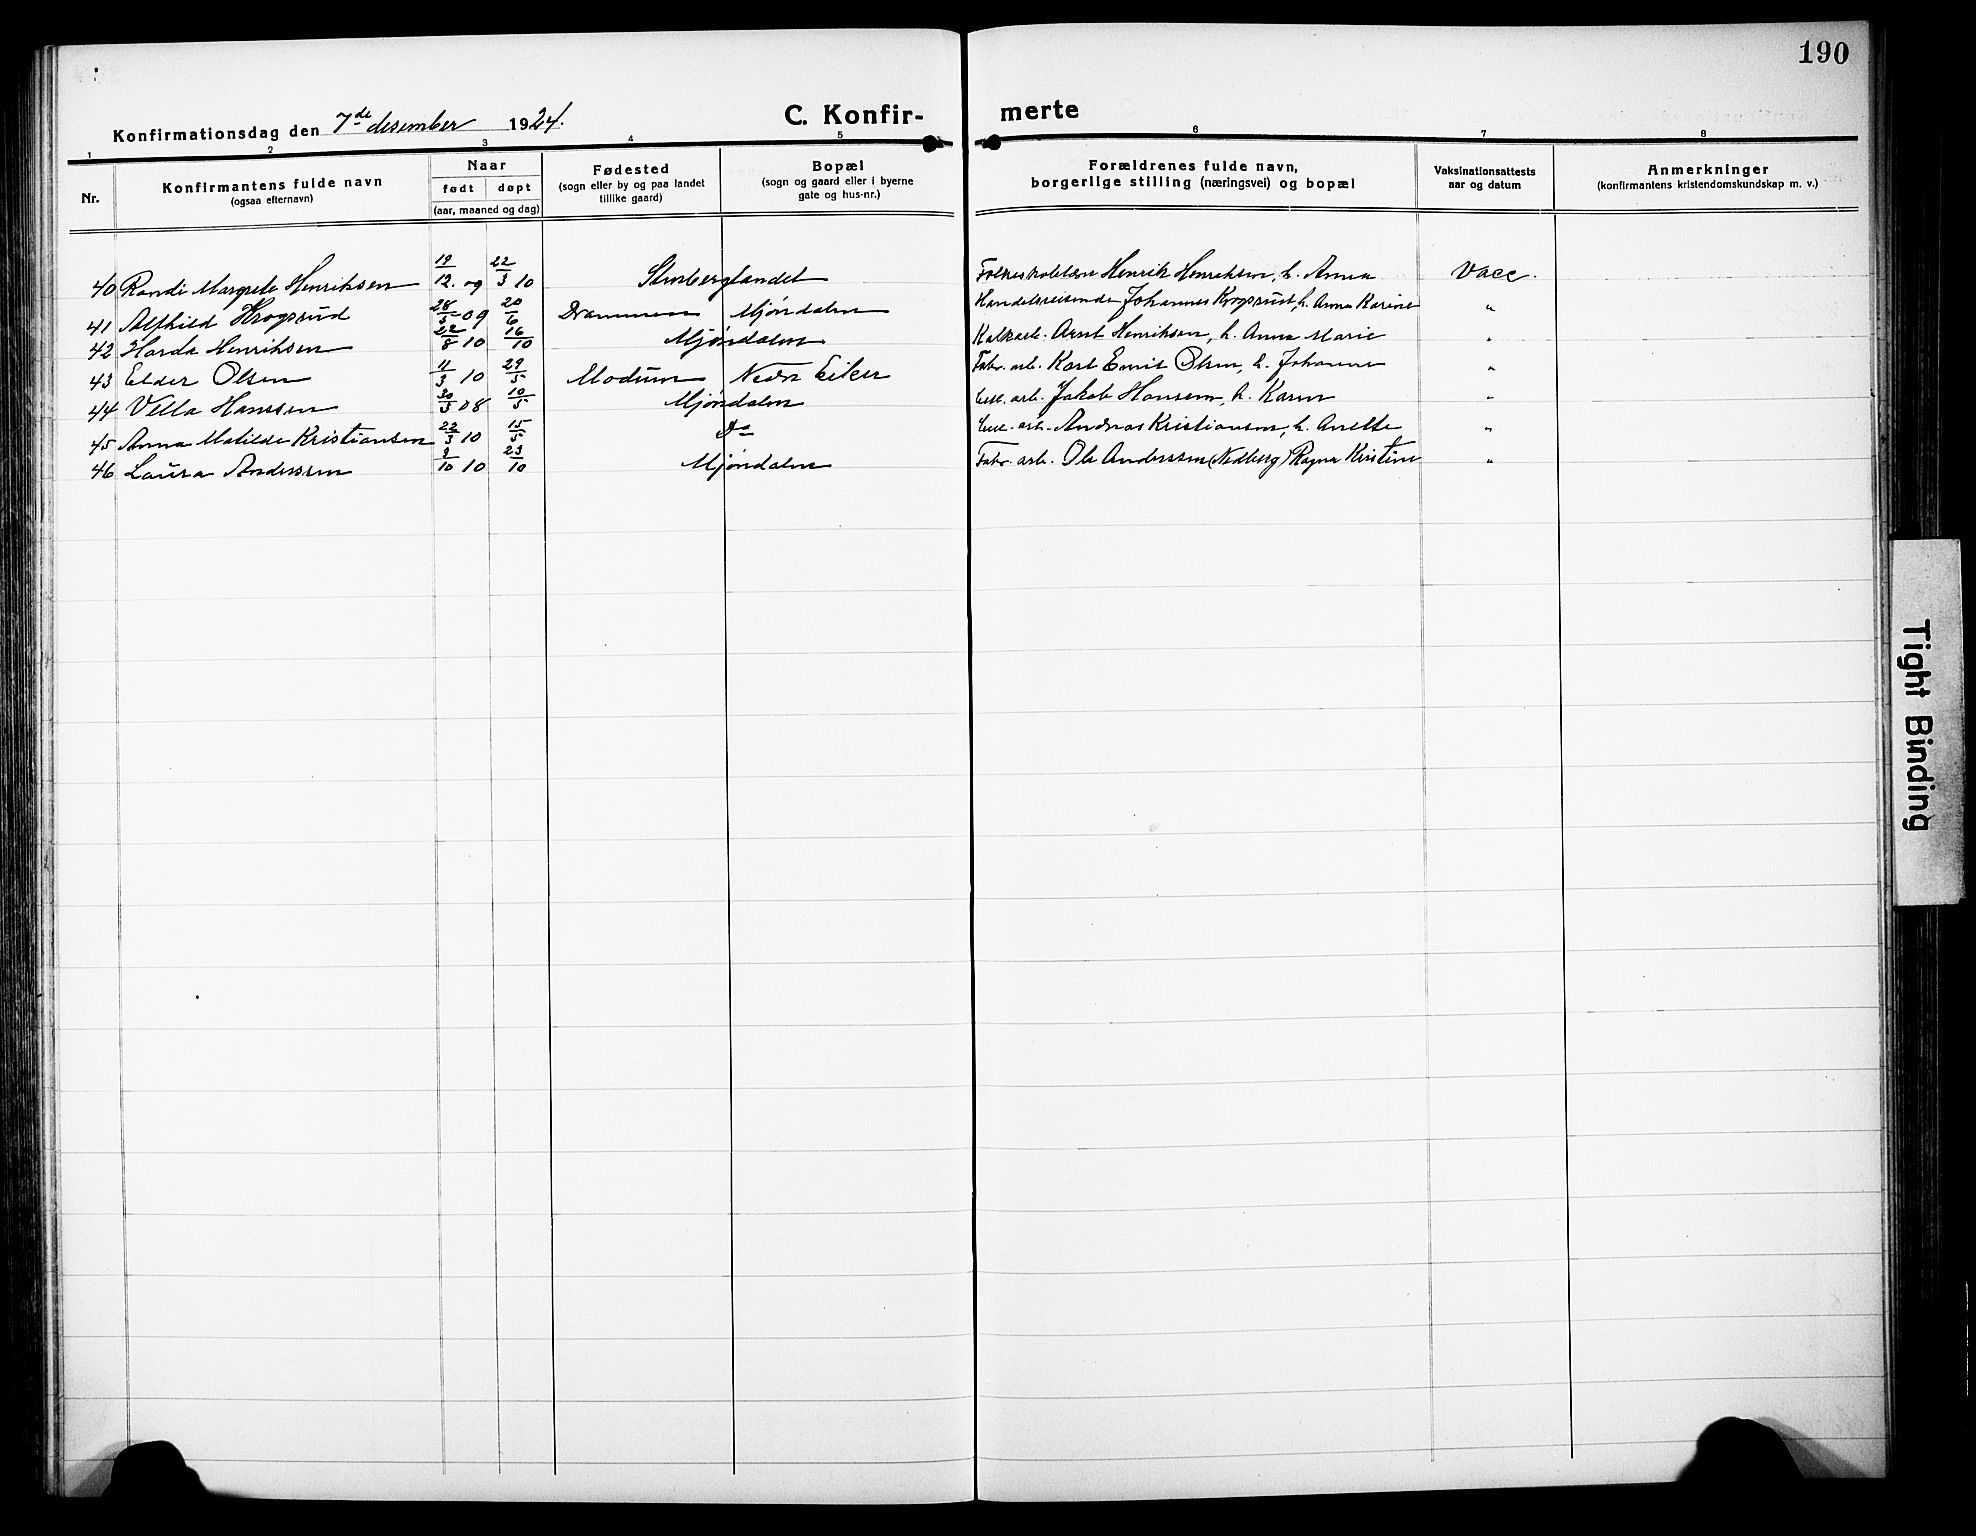 190
Konfirmationsdag den 7de desember 1924. C. Konfir- merte
1 2 3 4 5 6 7 8
Nr. Konfirmantens fulde navn (ogsaa efternavn) Naar født døpt (aar, maaned og dag) Fødested (sogn eller by og paa landet tillike gaard) Bopæl (sogn og gaard eller i byerne gate og hus-nr.) Forældrenes fulde navn, borgerlige stilling (næringsvei) og bopæl Vaksinationsattests aar og datum Anmerkninger (konfirmantens kristendomskundskap m. v.)
40 Randi Margrete Henriksen 19/12. 09 22/3 10 Stenberglandet Folkeskolelærer Henrik Henriksen, h. Anna Vacc.
41 Alfhild Krogsrud 28/5 09 20/6 Drammen Mjøndalen Handelsreisende Johannes Krogsrud, h. Anna Karine "
42 Harda Henriksen 22/8 10 16/10 Mjøndalen Kalkarb. Arnt Henriksen, h. Anna Marie "
43 Elder Olsen 11/3 10 29/5 Modum Nedre Eiker Fabr. arb. Karl Emil Olsen, h. Johanne "
44 Vella Hanssen 30/3 08 10/5 Mjøndalen Cell. arb. Jakob Hansen, h. Karen "
45 Anna Matilde Kristiansen 22/3 10 15/5 Do Cell. arb. Andreas Kristiansen, h. Anette "
46 Laura Anderssen 9/10 10 23/10 Mjøndalen Fabr. arb. Ole Anderssen (Nedberg) Ragna Kristine "
Tight Binding